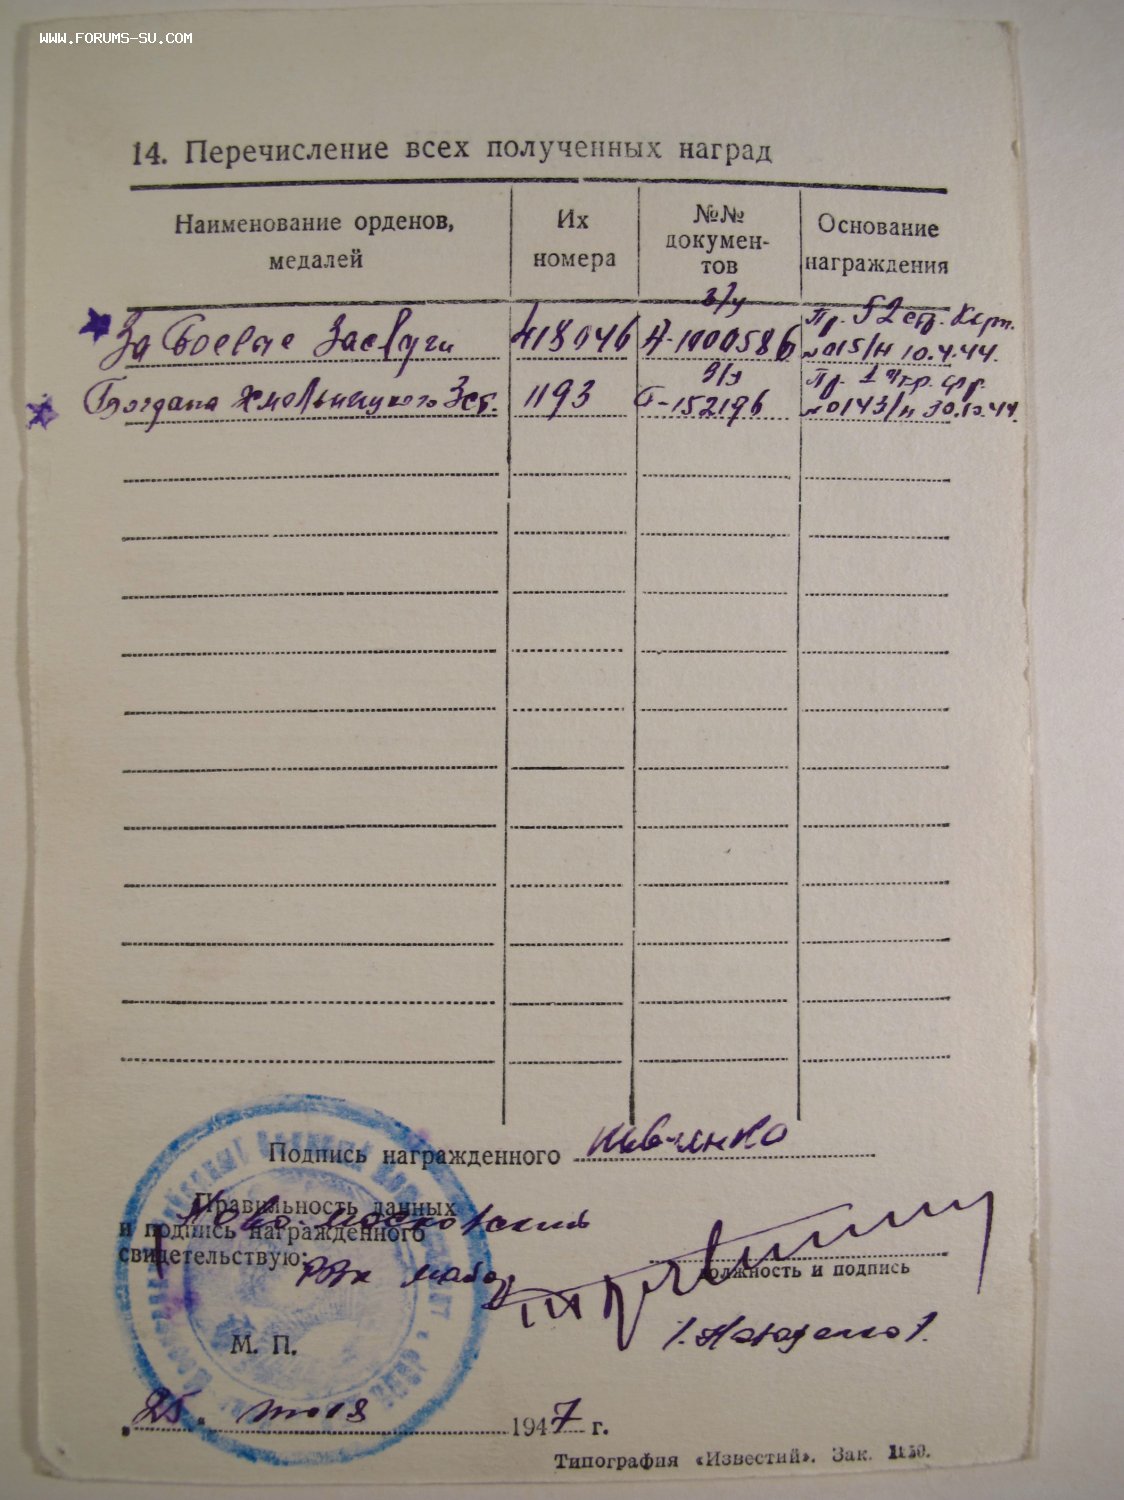 WWW.FORUMS-SU.COM
14. Перечисление всех полученных наград
Наименование орденов, медалей
Их номера
№№ документов
Основание награждения
За Боевые Заслуги 418046 А-1000586 Пр. 52 стр. Корп. №015/н 10.4.44.
Богдана Хмельницкого 3 ст. 1193 Г-152196 Пр. 1 Укр. фр. №0143/н 30.10.44.
Подпись награжденного Шевченко
Правильность данных
и подпись награжденного
свидетельствую:
Ново-московский
РВК майор
должность и подпись
М. П.
„25“ июля 1947 г.
Типография «Известий». Зак.